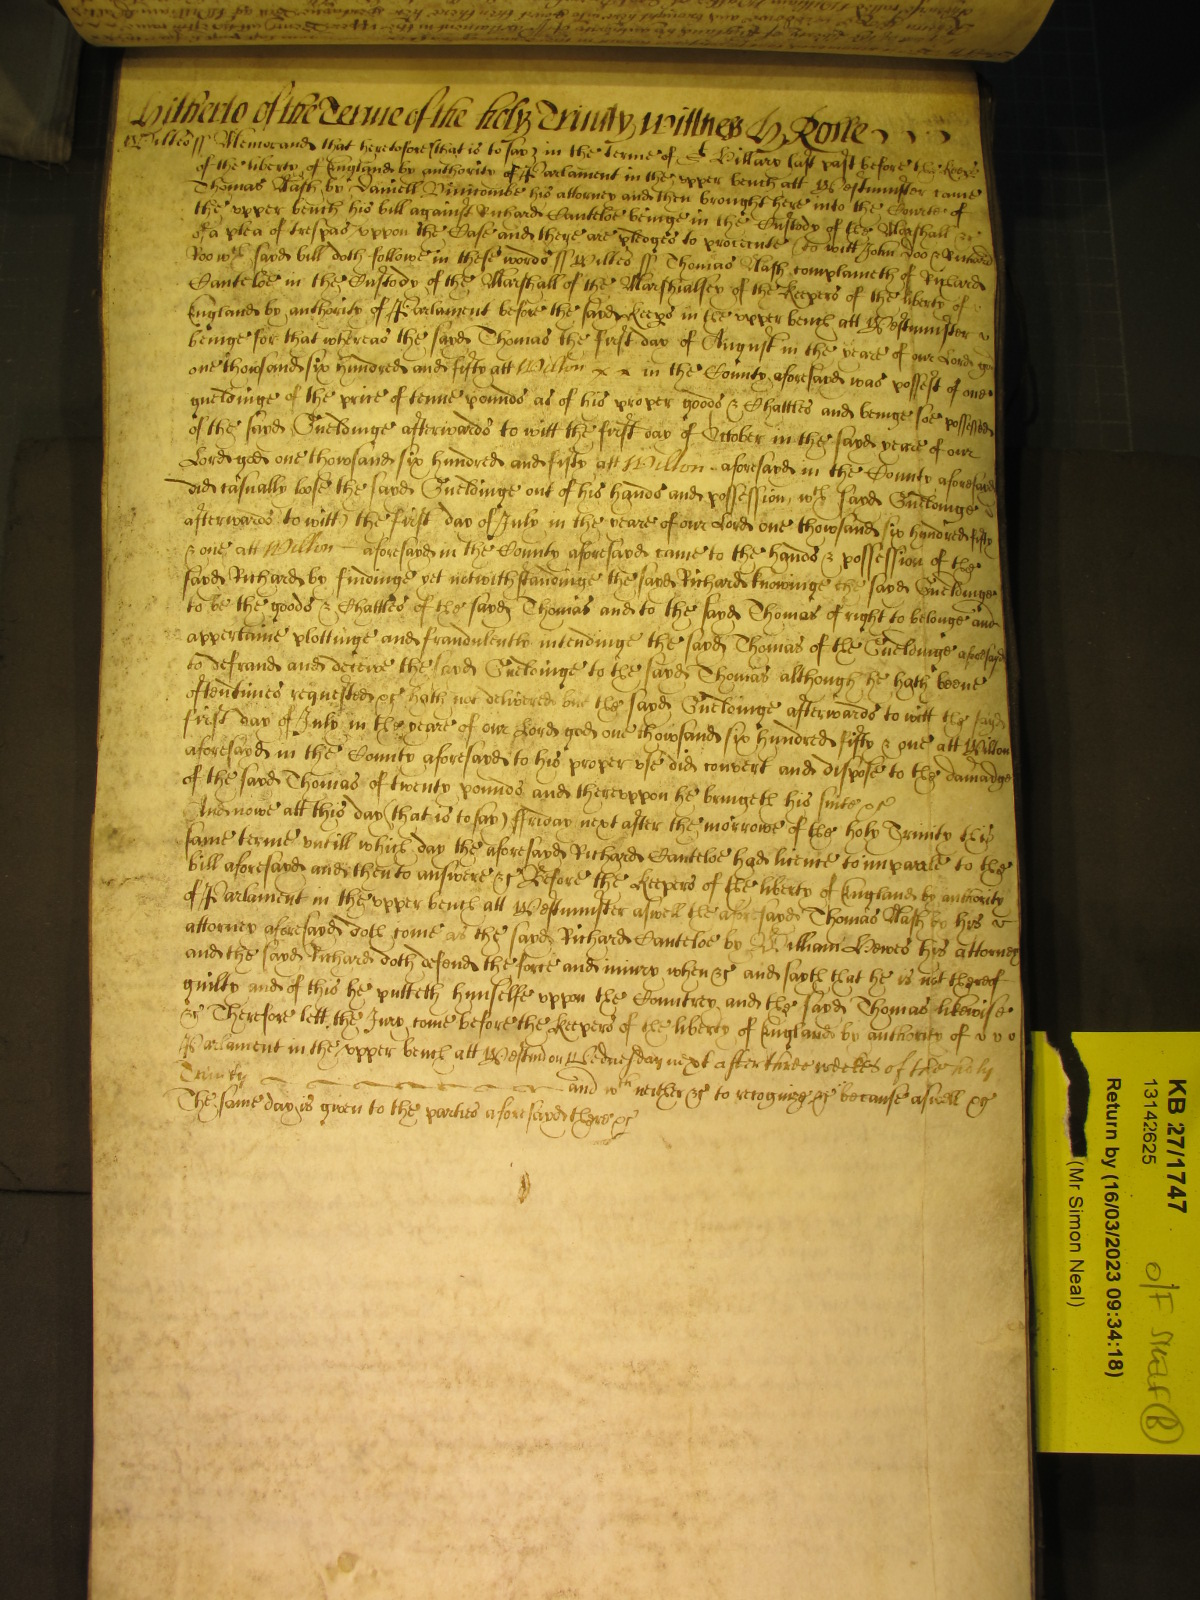 Hitherto of the Terme of the holy Trinity wittnes H Rolle
Wiltes ss Memorand that heretofore (that is to say) in the Terme of St Hillary last past before the keeps
of the liberty of England by authority of Parlament in the upper bench att Westminster came
Thomas Nash by Daniell his attorney and then brought here into the Courte of
the upper bench his bill against Richard Canteloe beinge in the Custody of the Marshall &c
of a plea of trespas uppon the Case and there are pledges to prosecute (to witt) John Doo & Richard
Roo wch sayd bill doth followe in these words ss Wiltes ss Thomas Nash complaineth of Richard
Canteloe in the Custody of the Marshall of the Marshialsey of the keepers of the liberty of
England by authority of Parlament before the sayd keeps in the upper bench att Westminster
beinge for that whereas the sayd Thomas the first day of August in the yeare of our Lord god
one thowsand six hundred and fifty att Wilton x x in the County aforesayd was possest of one
gueldinge of the price of tenne pounds as of his proper goods & Chattles and beinge soe possessed
of the sayd Gueldinge afterwards to witt the first day of October in the sayd yeare of our
Lord god one thowsand six hundred and fifty att Wilton aforesayd in the County aforesayd
did casually loose the sayd Gueldinge out of his hands and possession wch sayd Gueldinge
afterwards to witt) the first day of July in the yeare of our Lord one thowsand six hundred fifty
& one att Wilton aforesayd in the County aforesayd came to the hands & possession of the
sayd Richard by findinge yet notwithstandinge the sayd Richard knowinge the sayd Gueldinge
to be the goods & Chattles of the sayd Thomas and to the sayd Thomas of right to belonge and
appertaine plottinge and fraudulently intendinge the sayd Thomas of the Gueldinge aforesayd
to defraud and deceive the sayd Gueldinge to the sayd Thomas although he hath beene
oftentimes requested &c hath not delivered but the sayd Gueldinge afterwards to witt the sayd
first day of July in the yeare of our Lord god one thowsand six hundred fifty & one att Wilton
aforesayd in the County aforesayd to his proper use did convert and dispose to the damadge
of the sayd Thomas of twenty pounds and thereuppon he bringeth his suite &c
And nowe att this day (that is to say) ffriday next after the morrowe of the holy Trinity this
same terme untill which day the aforesayd Richard Canteloe had licence to imparle to the
bill aforesayd and then to answere &c Before the keepers of the liberty of England by authority
of Parlament in the upper bench att Westminster aswell the aforesayd Thomas Nash by his
attorney aforesayd doth come as the sayd Richard Canteloe by William Hewes his attorney
and the sayd Richard doth defend the force and iniury when &c and sayth that he is not thereof
guilty and of this he putteth himselfe uppon the Countrey and the sayd Thomas likewise
&c Therefore lett the Jury come before the keepers of the liberty of England by authority of
Parlament in the upper bench att Westm on Wednesday next after three weekes of the holy
Trinity and wch neither &c to recognize &c because aswell &c
The same day is given to the parties aforesayd there &c
KB 27/1747
13142625
Return by (16/03/2023 09:34:18)
(Mr Simon Neal)